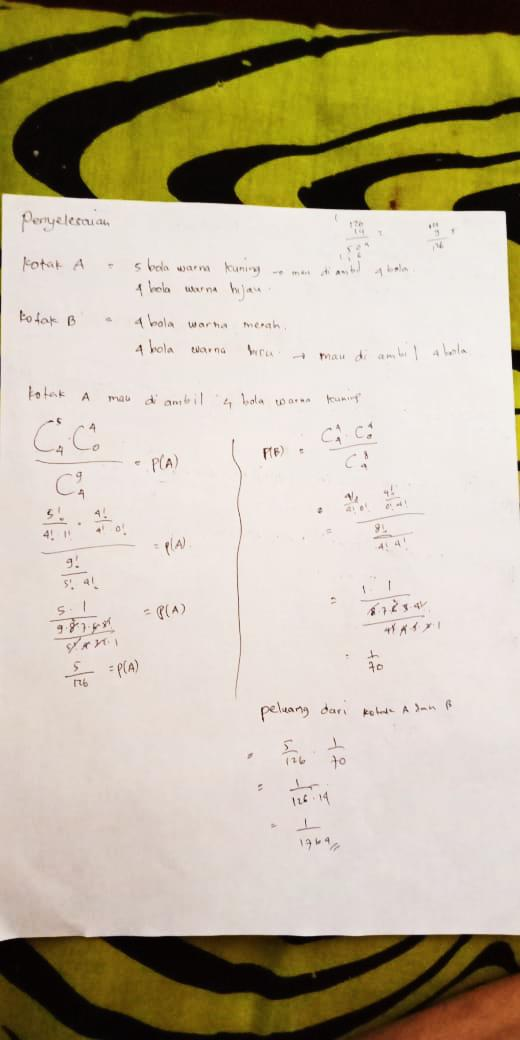 Penyelesaian
126
14
504
126
Kotak A = 5 bola warna kuning → mau di ambil 4 bola.
4 bola warna hijau.
Kotak B = 4 bola warna merah.
4 bola warna biru → mau di ambil 4 bola
Kotak A mau di ambil 4 bola warna kuning
C⁵₄ · C⁴₀
C⁹₄
= P(A)
5!
4! 1!
·
4!
4! 0!
= P(A)
9!
5! 4!
5 · 1
= P(A)
9·8·7·6·5!
5! 4·3·2·1
5/126 = P(A)
P(B) = C⁴₄ · C⁴₀
C⁸₄
=
4!
4! 0!
4!
0! 4!
8!
4! 4!
= 1 · 1
8·7·6·5·4!
= 1/70
peluang dari kotak A dan B
= 5/126 · 1/70
= 1/126·14
= 1/1764